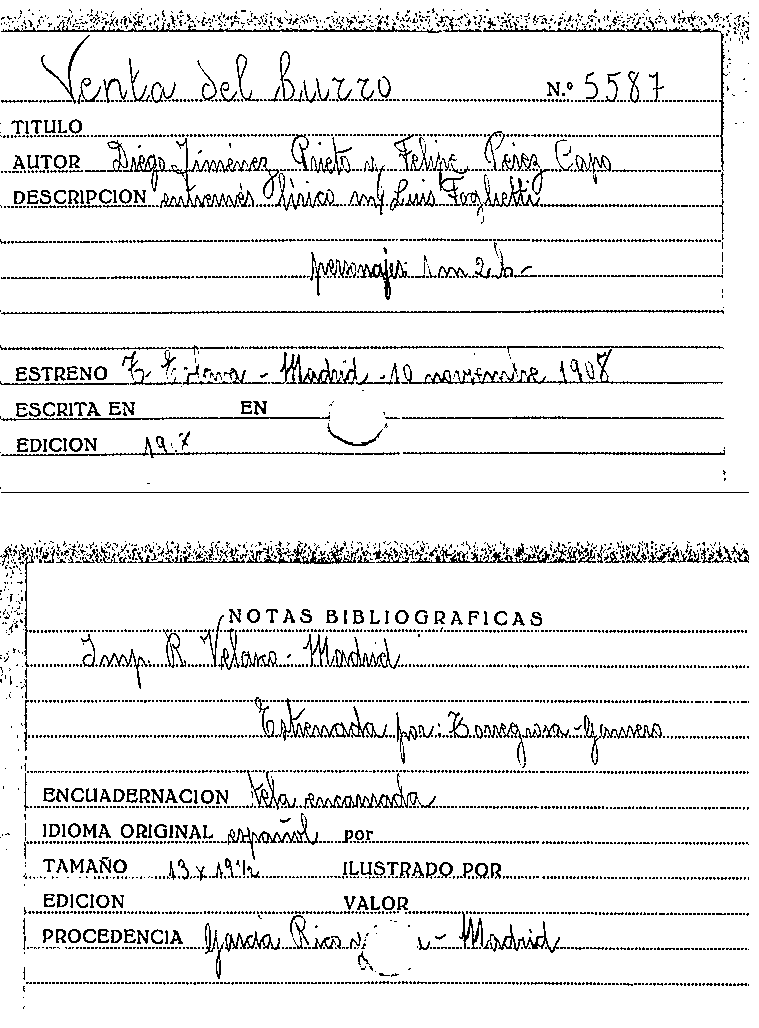 Venta del burro N.º 5587
TITULO
AUTOR Diego Jiménez Prieto y Felipe Pérez Capo
DESCRIPCION entremés lírico m/ Luis Foglietti
personajes: 1 m 2 h-
ESTRENO T. Eslava - Madrid - 10 noviembre 1908
ESCRITA EN EN
EDICION
NOTAS BIBLIOGRAFICAS
Imp. R. Velasco - Madrid
Estrenada por: Torregrosa - Gamero
ENCUADERNACION tela encarnada
IDIOMA ORIGINAL español por
TAMAÑO 13 x 19½ ILUSTRADO POR
EDICION VALOR
PROCEDENCIA García Rico y - Madrid